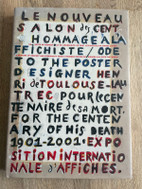 LE NOUVEAU
SALON des CENT
HOMMAGE à L'A
FFICHISTE/ODE
TO THE POSTER
DESIGNER HEN
Ri de TOULOUSE-LAU
TREC POUR le CEN
TENAIRE de sa MORT.
FOR THE CENTEN
ARY OF HIS DEATH
1901-2001. EXPO
SITION INTERNATIO
NALE d'AFFICHES.